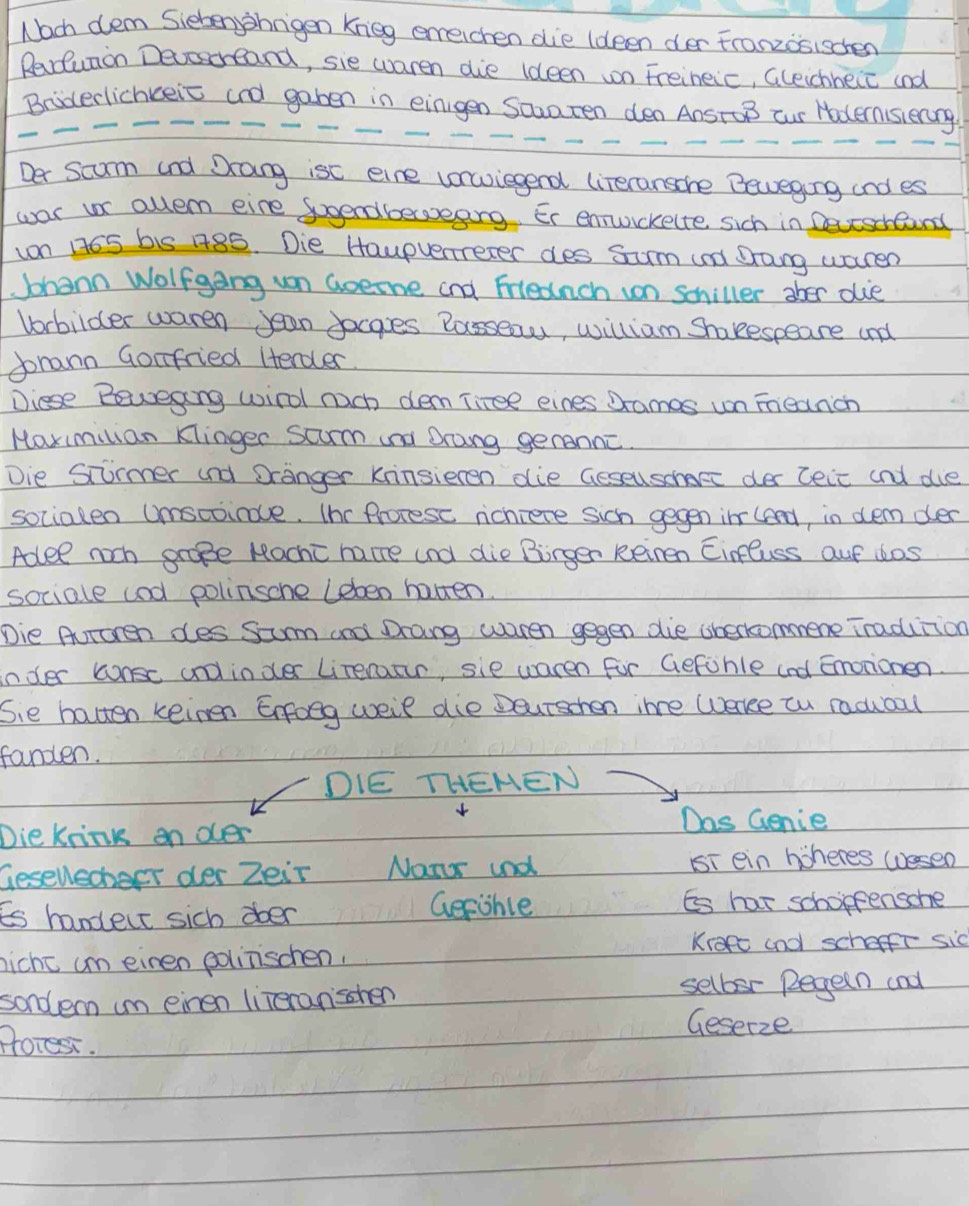 Nach dem Siebenjährigen Krieg erreichen die Ideen der Französischen
Revolution Deutschland, sie waren die Ideen von Freiheit, Gleichheit und
Brüderlichkeit und gaben in einigen Staaten den Anstoß zur Modernisierung.
Der Sturm und Drang ist eine vorwiegend literarische Bewegung und es
war vor allem eine Jugendbewegung. Er entwickelte sich in Deutschland
von 1765 bis 1785. Die Haupvertreter des Sturm und Drang waren
Johann Wolfgang von Goethe und Friedrich von Schiller aber die
Vorbilder waren Jean Jacques Rousseau, William Shakespeare und
Johann Gottfried Herder.
Diese Bewegung wird nach dem Titel eines Dramas von Friedrich
Maximilian Klinger Sturm und Drang genannt.
Die Stürmer und Dränger kritisieren die Gesellschaft der Zeit und die
sozialen Umstände. Ihr Protest richtete sich gegen ihr Land, in dem der
Adel noch große Macht hatte und die Bürger keinen Einfluss auf das
soziale und politische Leben hatten.
Die Autoren des Sturm und Drang waren gegen die überkommene Tradition
in der Kunst und in der Literatur, sie waren für Gefühle und Emotionen.
Sie hatten keinen Erfolg weil die Deutschen ihre Werke zu radikal
fanden.
DIE THEMEN
Die Kritik an der
Gesellschaft der Zeit
Es handelt sich aber
nicht um einen politischen,
sondern um einen literarischen
Protest.
Natur und
Gefühle
Das Genie
ist ein höheres Wesen
Es hat schöpferische
Kraft und schafft sic
selber Regeln und
Gesetze